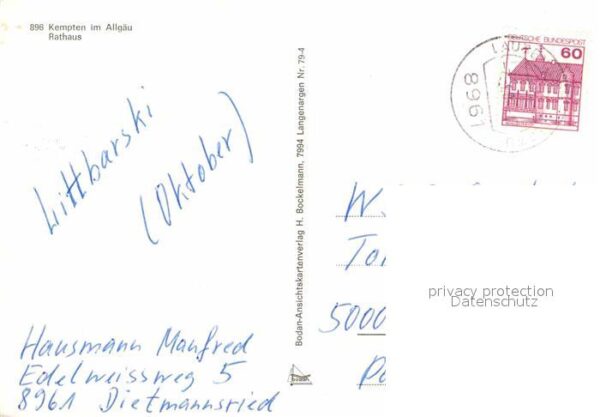 896 Kempten im Allgäu
Rathaus
DEUTSCHE BUNDESPOST
60
8968
Littbarski
(Oktober)
Bodan-Ansichtskartenverlag H. Bockelmann, 7994 Langenargen Nr. 79-4
W
To
5000
privacy protection
Datenschutz
Hausmann Manfred
Edelweissweg 5
8961 Dietmannsried